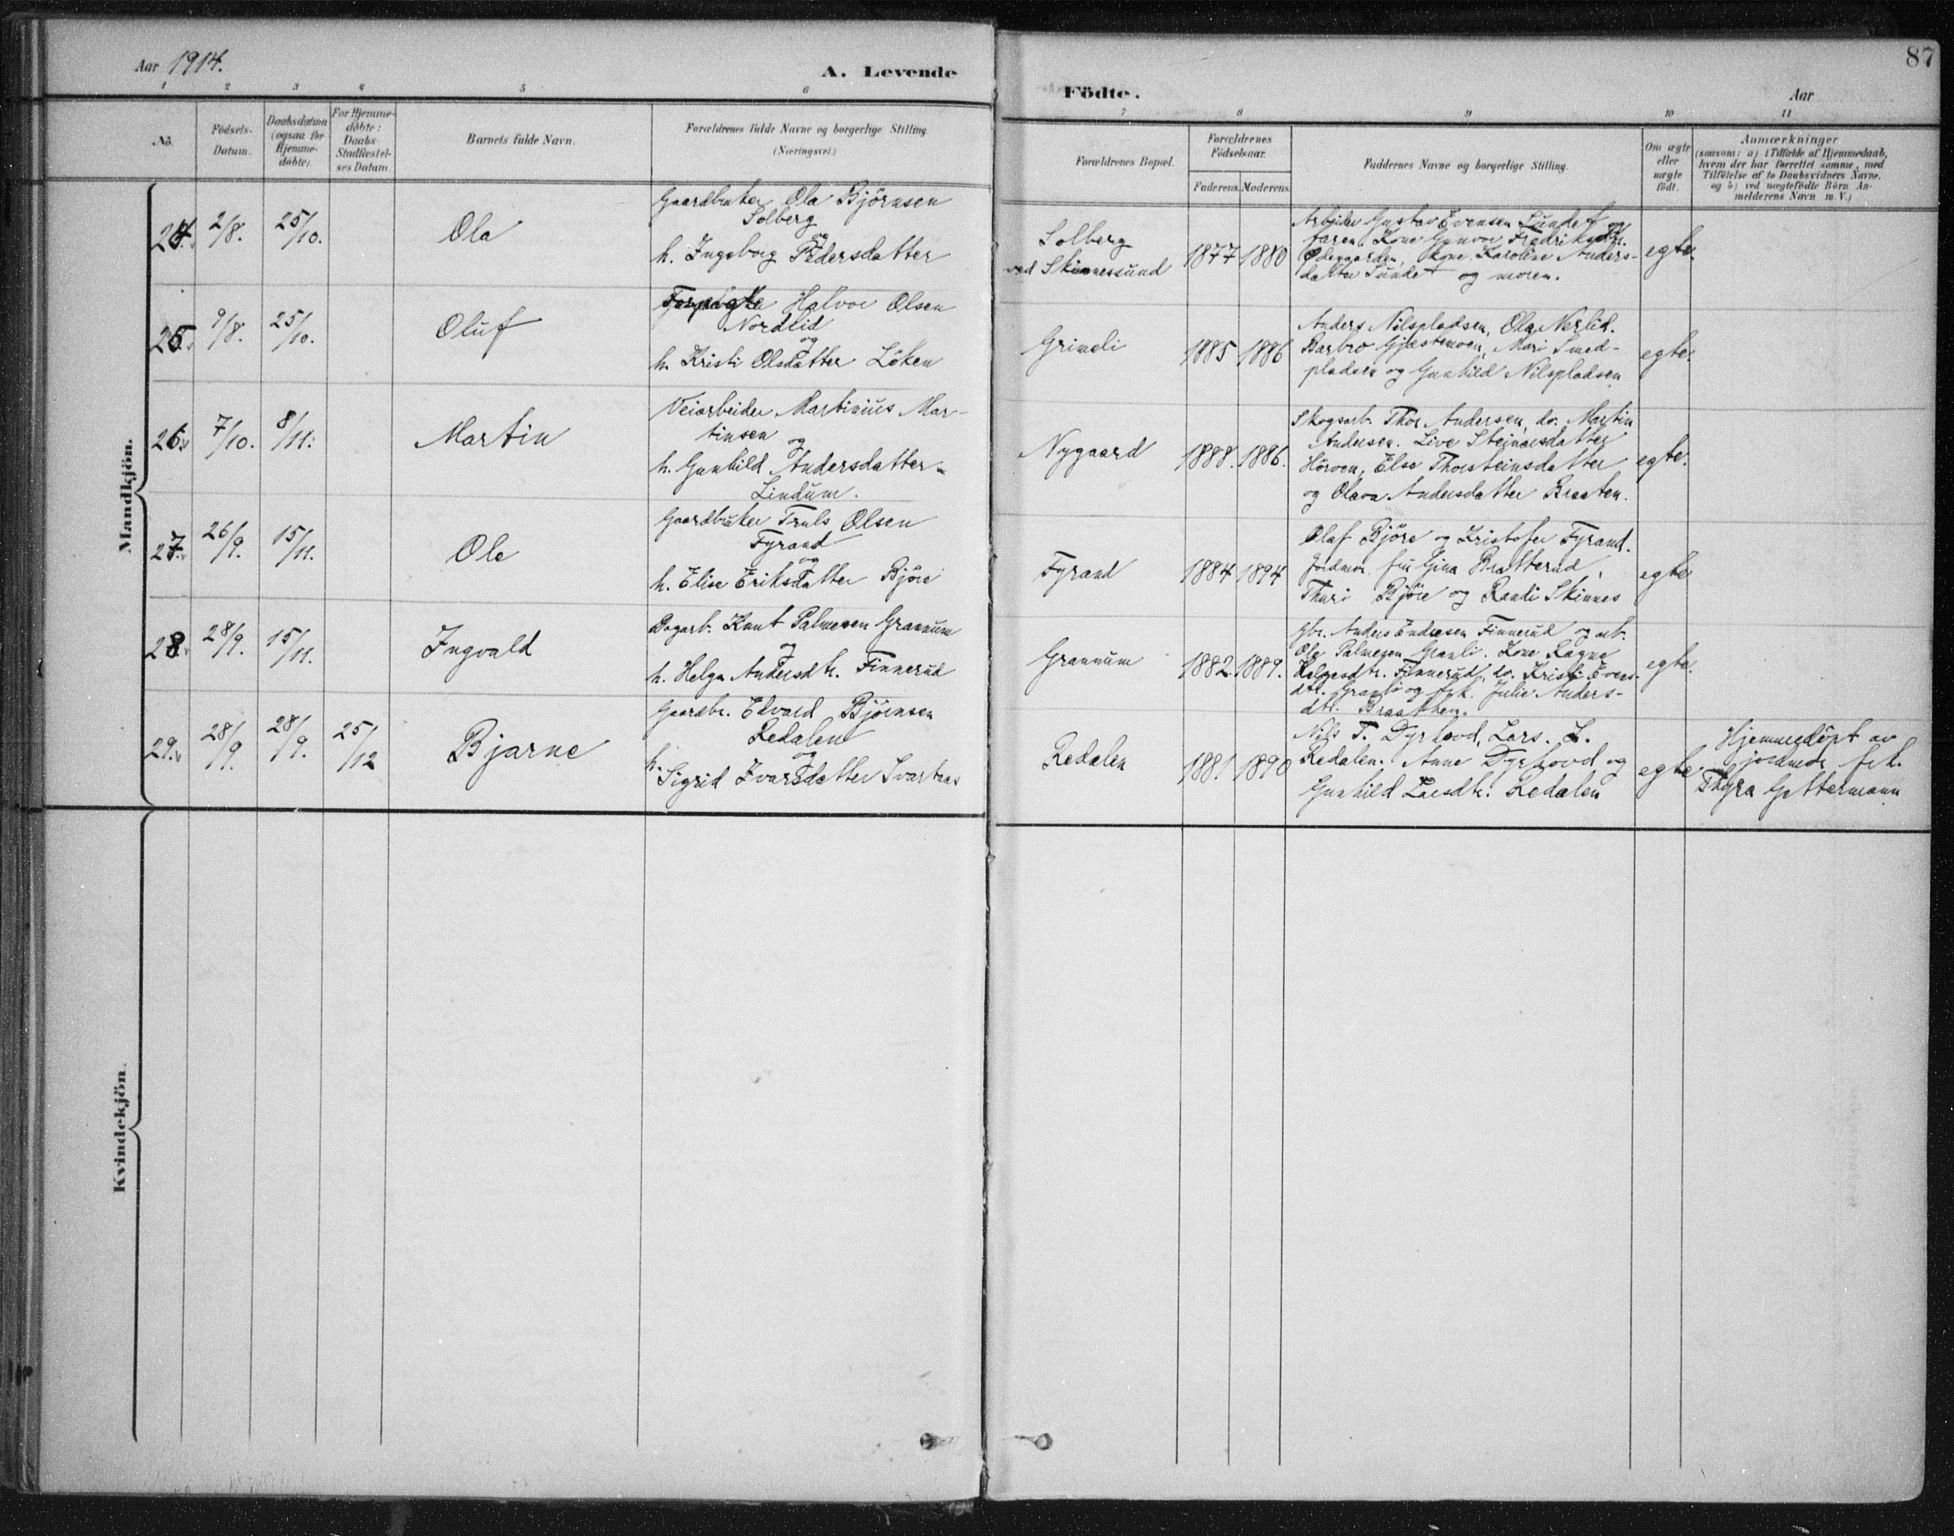 Aar 1914.
A. Levende
Födte.
Aar
87
1 2 3 4 5 6 7 8 9 10 11
No.
Födsels-
Datum.
Daabsdatum
(ogsaa for
Hjemme-
döbte).
For Hjemme-
döbte:
Daabs-
Stadfæstel-
ses Datum.
Barnets fulde Navn.
Forældrenes fulde Navne og borgerlige Stilling.
(Næringsvei.)
Forældrenes Bopæl.
Forældrenes
Födselsaar.
Faderens. Moderens.
Faddernes Navne og borgerlige Stilling.
Om ægte
eller
uægte
födt.
Anmærkninger
(saasom: a) i Tilfælde af Hjemmedaab,
hvem der har forrettet samme, med
Tilföielse af to Daabsvidners Navne,
og b) ved uægtefödte Börn An-
melderens Navn m. V.)
Mandkjön.
24. 2/8. 25/10.
Ola
Gaardbruker Ola Bjørnsen
Solberg
og
h. Ingeborg Pedersdatter
Solberg
ved Skinnessund
1877 1880
Arbeider Gustav Evensen Sundet og
faren, Kone Gunvor Fredriksdtr.
Ødegaarden, Kone Karoline Anders-
datter Sundet og moren.
egte.
25. 9/8. 25/10.
Oluf
Halvor Olsen
Nordlid
og
h. Kristi Olsdatter Løken
Grimeli
1885 1886
Anders Nilspladsen, Ola Nerlid.
Barbro Gjæstemoen, Mari Smed-
pladsen og Gunhild Nilspladsen
egte.
26. 7/10. 8/11.
Martin
Veiarbeider Martinius Mar-
tinsen
og
h. Gunhild Andersdatter
Lindum.
Nygaard
1888. 1886.
Skogsarb. Thor Andersen, do. Martin
Andersen. Live Steinarsdatter
Hørven, Else Thorsteinsdatter
og Olava Andersdatter Braaten.
egte.
27. 26/9. 15/11.
Ole
Gaardbruker Truls Olsen
Fyrand
og
h. Elise Eriksdatter Bjøre
Fyrand
1884 1894
Olaf Björe og Kristofer Fyrand.
Jordmor fru Gina Bratterud,
Thuri Björe og Randi Skinnes
egte
28. 28/9. 15/11.
Ingvald
Dagarb. Knut Palmesen Grannum
og
h. Helga Andersdtr. Finnerud
Grannum
1882. 1889.
Gbr. Anders Endresen Finnerud og arb.
Ole Palmesen Granli. Kone Ragne
Helgesdtr. Finnerud, do. Kristi Evens-
dtr. og frk. Julie Anders-
dtr. Braathen.
egte.
29. 28/9. 28/9. 25/12
Bjarne
Gaardbr. Edvard Bjørnsen
Redalen
og
h. Sigrid Ivarsdatter Svartaas
Redalen
1881 1890
Nils T. Dyrhovd, Lars. L.
Redalen. Anne Dyrhovd og
Gunhild Larsdtr. Redalen
egte
Hjemmedöpt av
jordmor frk.
Thyra Gettermann
Kvindekjön.